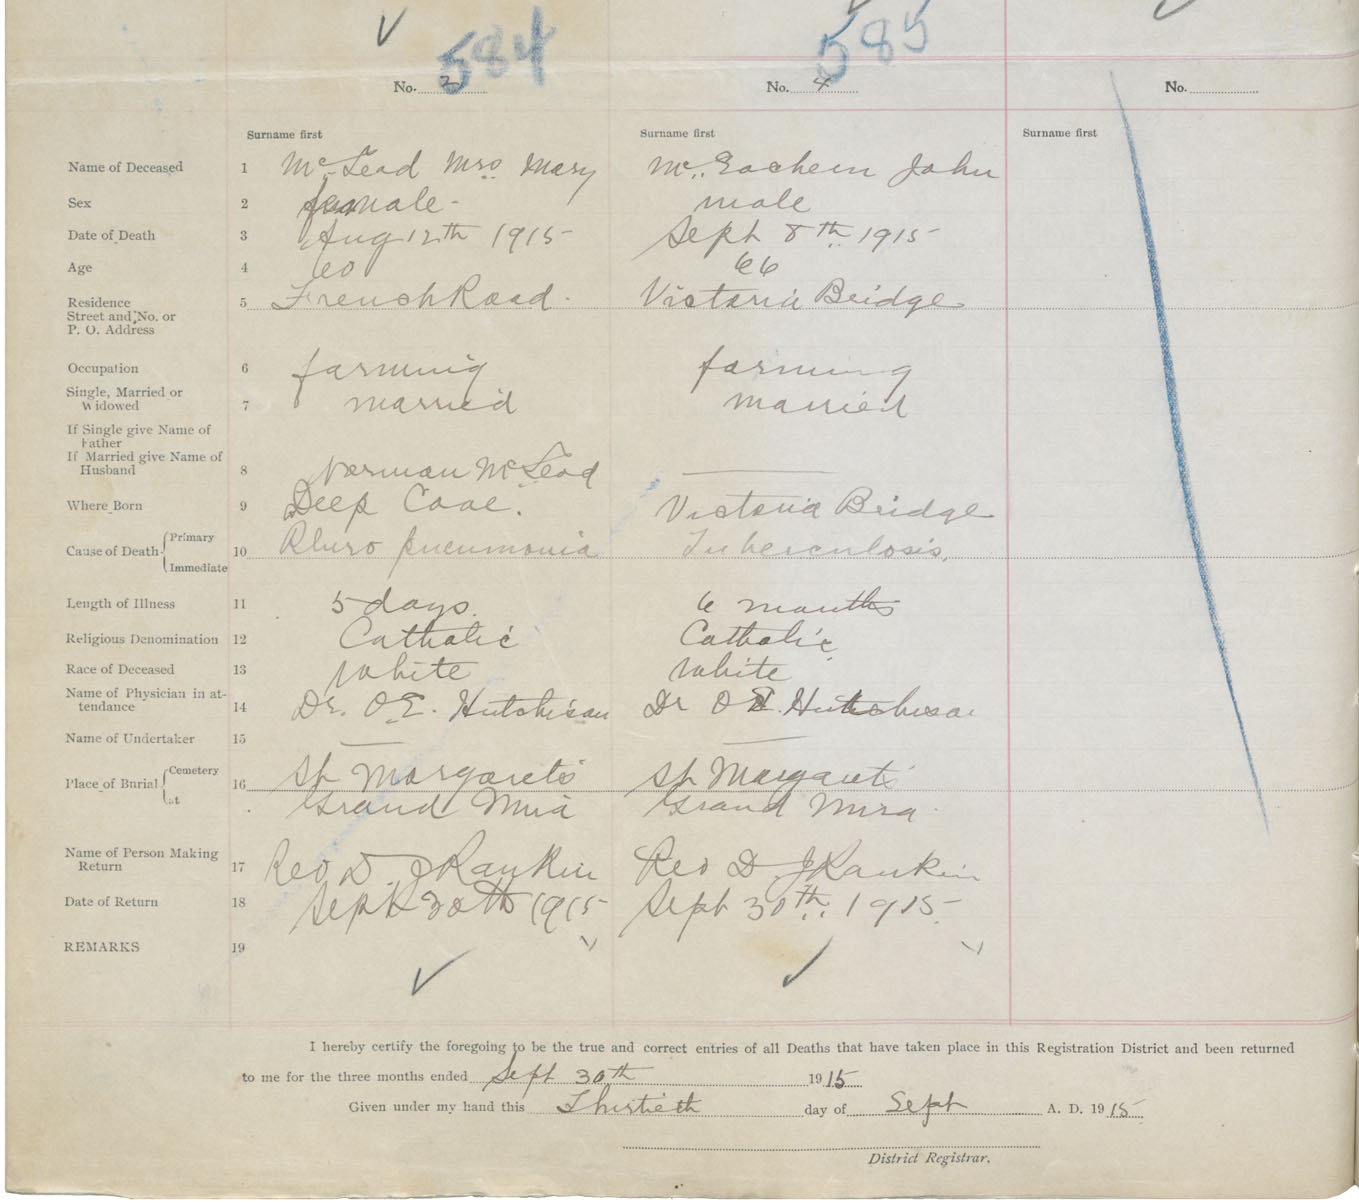 584 585
No. 3 No. 4 No.
Surname first Surname first Surname first
Name of Deceased 1 McLead Mrs Mary McEachern John
Sex 2 female - male
Date of Death 3 Aug 12th 1915 Sept 8th 1915
Age 4 60 66
Residence 5 French Road. Victoria Bridge
Street and No. or
P. O. Address
Occupation 6 farming farming
Single, Married or
Widowed 7 married married
If Single give Name of
Father
If Married give Name of
Husband 8 Norman McLead —
Where Born 9 Deep Cove. Victoria Bridge
Cause of Death Primary 10 Pluro pneumonia Tuberculosis,
Immediate
Length of Illness 11 5 days. 6 months
Religious Denomination 12 Catholic Catholic
Race of Deceased 13 White White
Name of Physician in at-
tendance 14 Dr. O E. Hutchison Dr O E. Hutchison
Name of Undertaker 15 — —
Place of Burial Cemetery 16 St Margarets St Margarets
at Grand Mira Grand Mira
Name of Person Making
Return 17 Rev D. J Rankin Rev D. J Rankin
Date of Return 18 Sept 30th 1915 Sept 30th 1915
REMARKS 19
I hereby certify the foregoing to be the true and correct entries of all Deaths that have taken place in this Registration District and been returned
to me for the three months ended Sept 30th 1915
Given under my hand this Thirtieth day of Sept A. D. 1915
District Registrar.